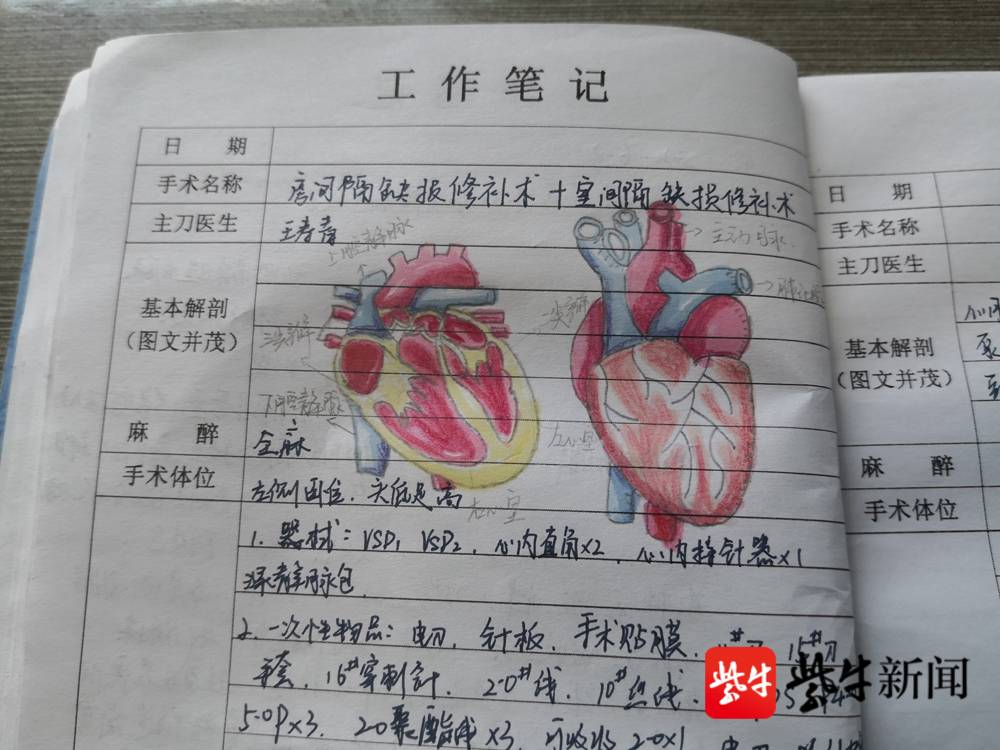 工作笔记
日 期
手术名称 房间隔缺损修补术+室间隔缺损修补术
主刀医生
上腔静脉
主动脉
基本解剖
(图文并茂)
三尖瓣
二尖瓣
下腔静脉
左心室
麻 醉 全麻
手术体位 左侧卧位,头低足高
右心室
1. 器材:VSD1 VSD2, 心内直角×2, 心内持针器×1
深静脉包
2. 一次性物品:电刀, 针板, 手术贴膜, 11#刀 15#刀
手套, 16#穿刺针, 2-0#线, 10#丝线,
5-0P×3, 2-0聚酯线×3, 可吸收 2-0×1
日 期
手术名称
主刀医生
基本解剖
(图文并茂)
麻 醉
手术体位
紫牛 紫牛新闻